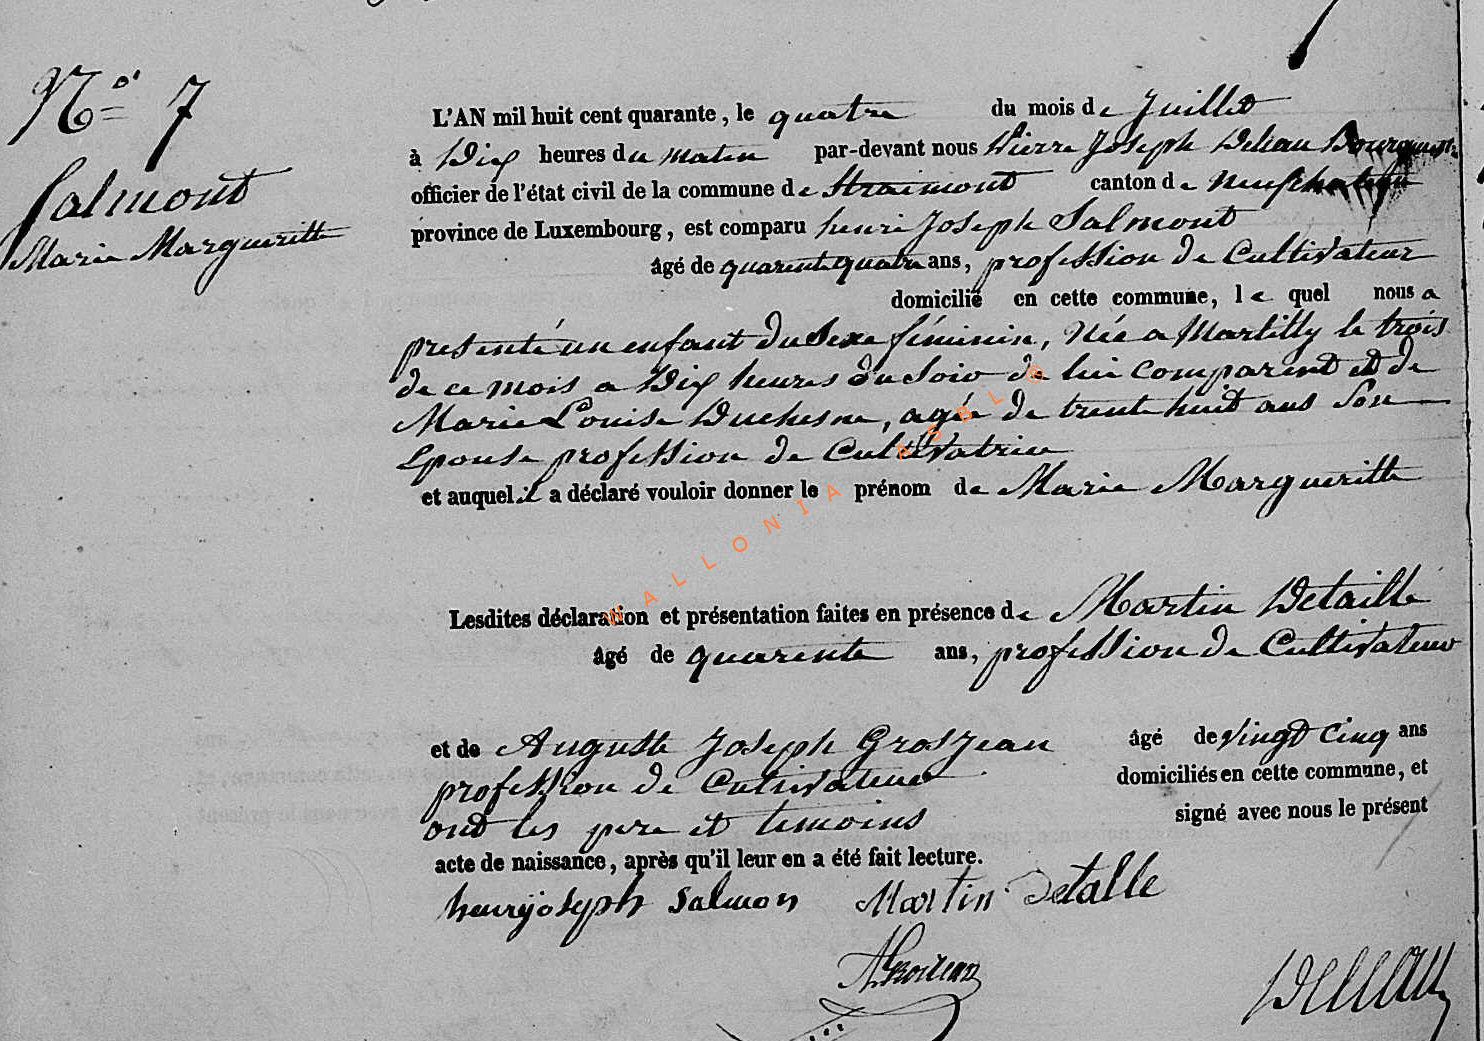 N.o 7
Salmont
Marie Margueritte
L'AN mil huit cent quarante, le quatre du mois de Juillet
à Dix heures du matin par-devant nous Pierre Joseph Deleau Bourgmest.
officier de l'état civil de la commune de Straimont canton de neufchateau
province de Luxembourg, est comparu henri Joseph Salmont
âgé de quarente quatre ans, profession de Cultivateur
domicilié en cette commune, le quel nous a
presenté un enfant du Sexe féminin, Née a Martilly le trois
de ce mois a Dix heures du Soir de lui Comparent et de
Marie Louise Duchesne, agée de trente huit ans Son
Epouse profession de Cultivatrice
et auquel il a déclaré vouloir donner le prénom de Marie Margueritte
WALLONIA ASBL ©
Lesdites déclaration et présentation faites en présence de Martin Detaille
âgé de quarente ans, profession de Cultivateur
et de Auguste Joseph GrosJean âgé de vingt Cinq ans
profession de Cutivateur domiciliés en cette commune, et
ont les pere et temoins signé avec nous le présent
acte de naissance, après qu'il leur en a été fait lecture.
henryjoseph Salmon Martin Detalle
AGrosJean
Deleau